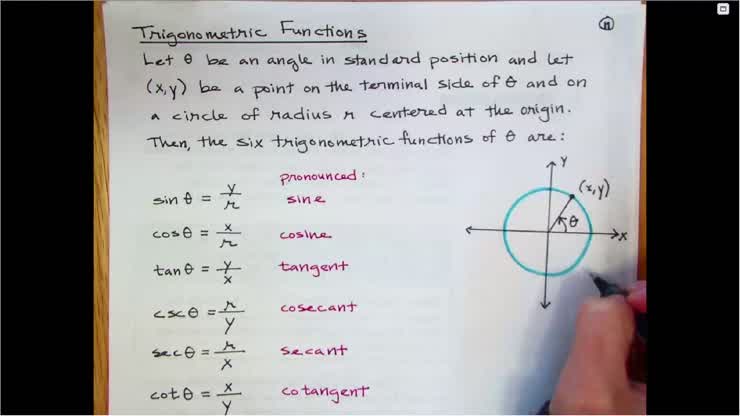 Trigonometric Functions
n
Let θ be an angle in standard position and let
(x,y) be a point on the terminal side of θ and on
a circle of radius r centered at the origin.
Then, the six trigonometric functions of θ are:
pronounced:
sin θ = y/r sine
cos θ = x/r cosine
tan θ = y/x tangent
csc θ = r/y cosecant
sec θ = r/x secant
cot θ = x/y cotangent
y
(x,y)
θ
x